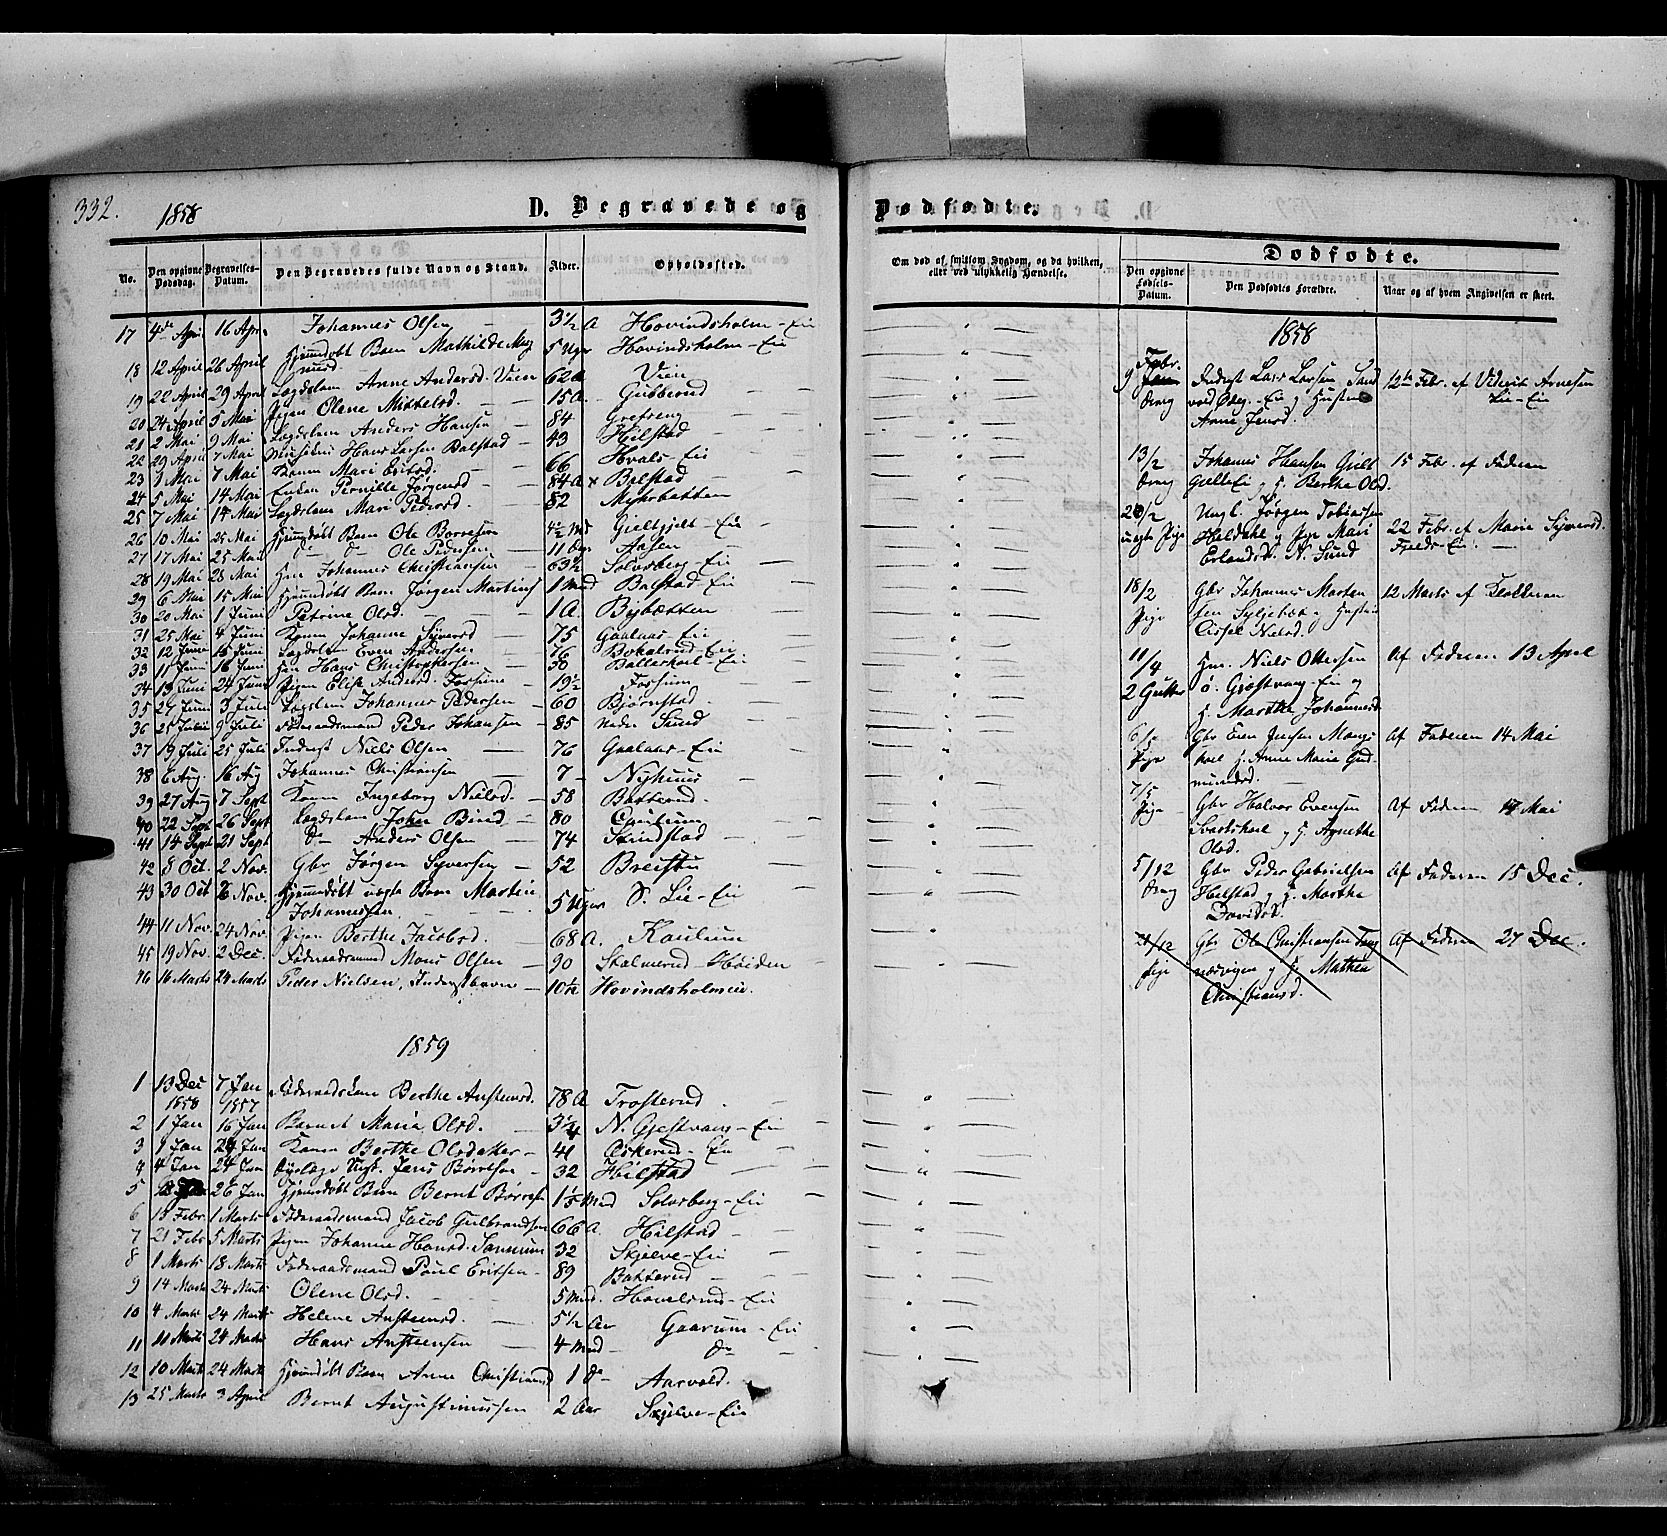 332.
1858
D. Begravede og
No. Den opgivne Dødsdag. Begravelses-Datum. Den Begravedes fulde Navn og Stand. Alder. Opholdssted.
17 4de April 16 Apr. Johannes Olsen 3½ A Hovindsholm-Eie
18 12 April 26 April Hjemdøbt Barn Mathilde 5 Uger Hovindsholm-Eie
19 22 April 29 April Lægdslem Anne Andersd. Vien 62 A Vien
20 24 April 5 Mai Pigen Olene Mikkelsd. 15 A. Gubberud
21 2 Mai 9 Mai Lægdslem Anders Hansen 84 Grefseng
22 29 April 7 Mai Hans Larsen Balstad 43 Hilstad
23 1 Mai 7 Mai Konen Mari Eriksd. 66 Hvals-Eie
24 5 Mai 14 Mai Enken Pernille Jørgensd 84 A Balstad
25 7 Mai 14 Mai Lægdslem Mari Pedersd. 82 Myhrbakken
26 10 Mai 25 Mai Hjemdøbt Barn Ole Børresen 4½ Md Gieltgjelt-Eie
27 17 Mai 25 Mai d- d- Ole Pedersen 11 Aasen
28 19 Mai 28 Mai Hm Johannes Christiansen 63½ Solvsberg-Eie
29 6 Mai 15 Mai Hjemdøbt Barn Jørgen Martins 1 Mnd Balstad-Eie
30 20 Mai 1 Juni Petrine Olsd. 1 A. Bybakken
31 25 Mai 4 Juni Konen Johanne Syversd 75 Gaalaas-Eie
32 12 Juni 15 Juni Lægdslem Even Andersen 76 Bokalrud-Eie
33 11 Juni 16 Juni Hm Hans Christophersen 38 Ballerhoel-Eie
34 13 Juni 24 Juni Pigen Elise Andersd. Forseim 19½ Forseim
35 27 Juni 3 Juli Lægslem Johannes Pedersen 60 Bjørnstad
36 25 Juni 9 Juli Føderaadsmand Peder Johansen 85 Nedre Sund
37 19 Juli 25 Juli Inderst Niels Olsen 76 Gaalaas-Eie
38 6 Aug. 16 Aug Johannes Christiansen 7 Nyhuus
39 27 Aug 7 Sept Konen Ingeborg Nielsd. 58 Bakkerud
40 22 Sept 26 Sept Lægdslem Johan Bind 80
41 14 Sept 21 Sept d- Anders Olsen 74 Skindstad
42 8 Oct. 2 Nov. Gbr Jørgen Syversen 52
43 30 Oct 6 Nov. Hjemdøbt uægte Barn Martin 5 Uger S. Lie-Eie
Johannessen
44 11 Nov. 24 Nov. Pigen Berthe Jacobsd. 68 A. Kaulum
45 19 Nov. 2 Dec. Føderaadsmand Mons Olsen 90 Stalmerud-Høiden
46 16 Marts 24 Marts Peder Nielsen, Inderstbarn 10½ Hovindsholmeie.
1859
1 13 Dec 1858 7 Jan 1857 Føderaadskone Berthe Anstensd. 78 A Trosterud
2 1 Jan 16 Jan Barnet Maria Olsd. 3¼ N. Gjestvang-Eie
3 9 Jan 24 Jan Konen Berthe Olsdatter 41 Eskerud-Eie
4 4 Jan 24 Jan Ungk. Jens Børresen 32 Hilstad
5 26 Jan Hjemdøbt Barn Bernt Børresen 1½ Mnd Solvsberg-Eie
6 18 Febr 1 Marts Føderaadsmand Jacob Gulbrandsen 66 A. Hilstad
7 21 Febr 5 Marts Pigen Johanne Hansd. 32 Skjelve-Eie
8 1 Marts 18 Marts Føderaadsmand Poul Eriksen 89 Bakkerud
9 14 Marts 24 Marts Olene Olsd. 5 Mnd. Hovelsrud-Eie
10 4 Marts 24 Marts Helene Anstensd. 5½ Aar Gaarum-Eie
11 11 Marts 24 Marts Hans Anstensen 4 Mnd d-
12 10 Marts 24 Marts Hjemdøbt Barn Anne Christiansd 1 d- Aarvold.
13 25 Marts 3 April Bernt Augustinussen 2 Aar Skjelve-Eie
Dødfødte.
Om død af smitsom Sygdom, og da hvilken, eller ved ulykkelig Hændelse.
Dødfødte.
Den opgivne Fødsels-Datum. Den Dødfødtes Forældre. Naar og af hvem Angivelsen er skeet.
1858
9 Febr. Dreng Inderst Lars Larsen Sand 12te Febr. af Viderik Arnesen
vold Ødeg.-Eie og Hustru Lie-Eie
Anne Jensd.
13/2 Dreng Johannes Hansen Gielt 15 Febr. af Faderen
Gielt Eie og H. Berthe Olsd.
20/2 uægte Pige Ungk. Jørgen Tobiassen 22 Febr. af Marie Syversd.
Heldahl og Pige Mari Fjelds-Eie.
Erlandsd. N. Sund
18/2 Pige Gbr Johannes Marten 12 Marts af Klokkeren
sen Syljebæk og Hustru
Cissel Nielsd.
11/4 2 Gutter Hm. Niels Ottersen Af Faderen 13 April
ø. Gjøstvang-Eie og
H. Marthe Johannesd
6/5 Pige Gbr Even Jensen Mangs Af Faderen 14 Mai
hoel H. Anne Maria Gud
mundsd.
7/5 Pige Gbr Halvor Evensen Af Faderen 17 Mai
Svartshoel og H. Agnethe
Olsd.
5/12 Dreng Gbr Peder Gabrielsen Af Faderen 15 Dec.
Helstad og H. Marthe
Davidsd.
21/12 Pige Gbr Ole Christiansen Teng Af Faderen 27 Dec.
nesvigen og H. Mathea
Christiansd.